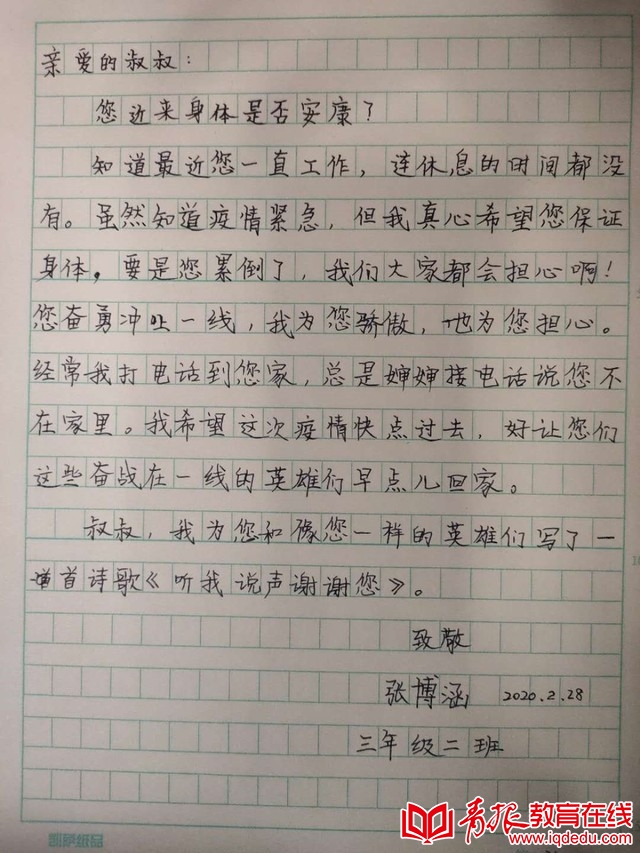 亲爱的叔叔：
您近来身体是否安康？
知道最近您一直工作，连休息的时间都没
有。虽然知道疫情紧急，但我真心希望您保证
身体，要是您累倒了，我们大家都会担心啊！
您奋勇冲吐一线，我为您骄傲，也为您担心。
经常我打电话到您家，总是婶婶接电话说您不
在家里。我希望这次疫情快点过去，好让您们
这些奋战在一线的英雄们早点儿回家。
叔叔，我为您和像您一样的英雄们写了一
首诗歌《听我说声谢谢您》。
致敬
张博涵 2020.2.28
三年级二班
凯萨纸品
青报教育在线
www.iqdedu.com